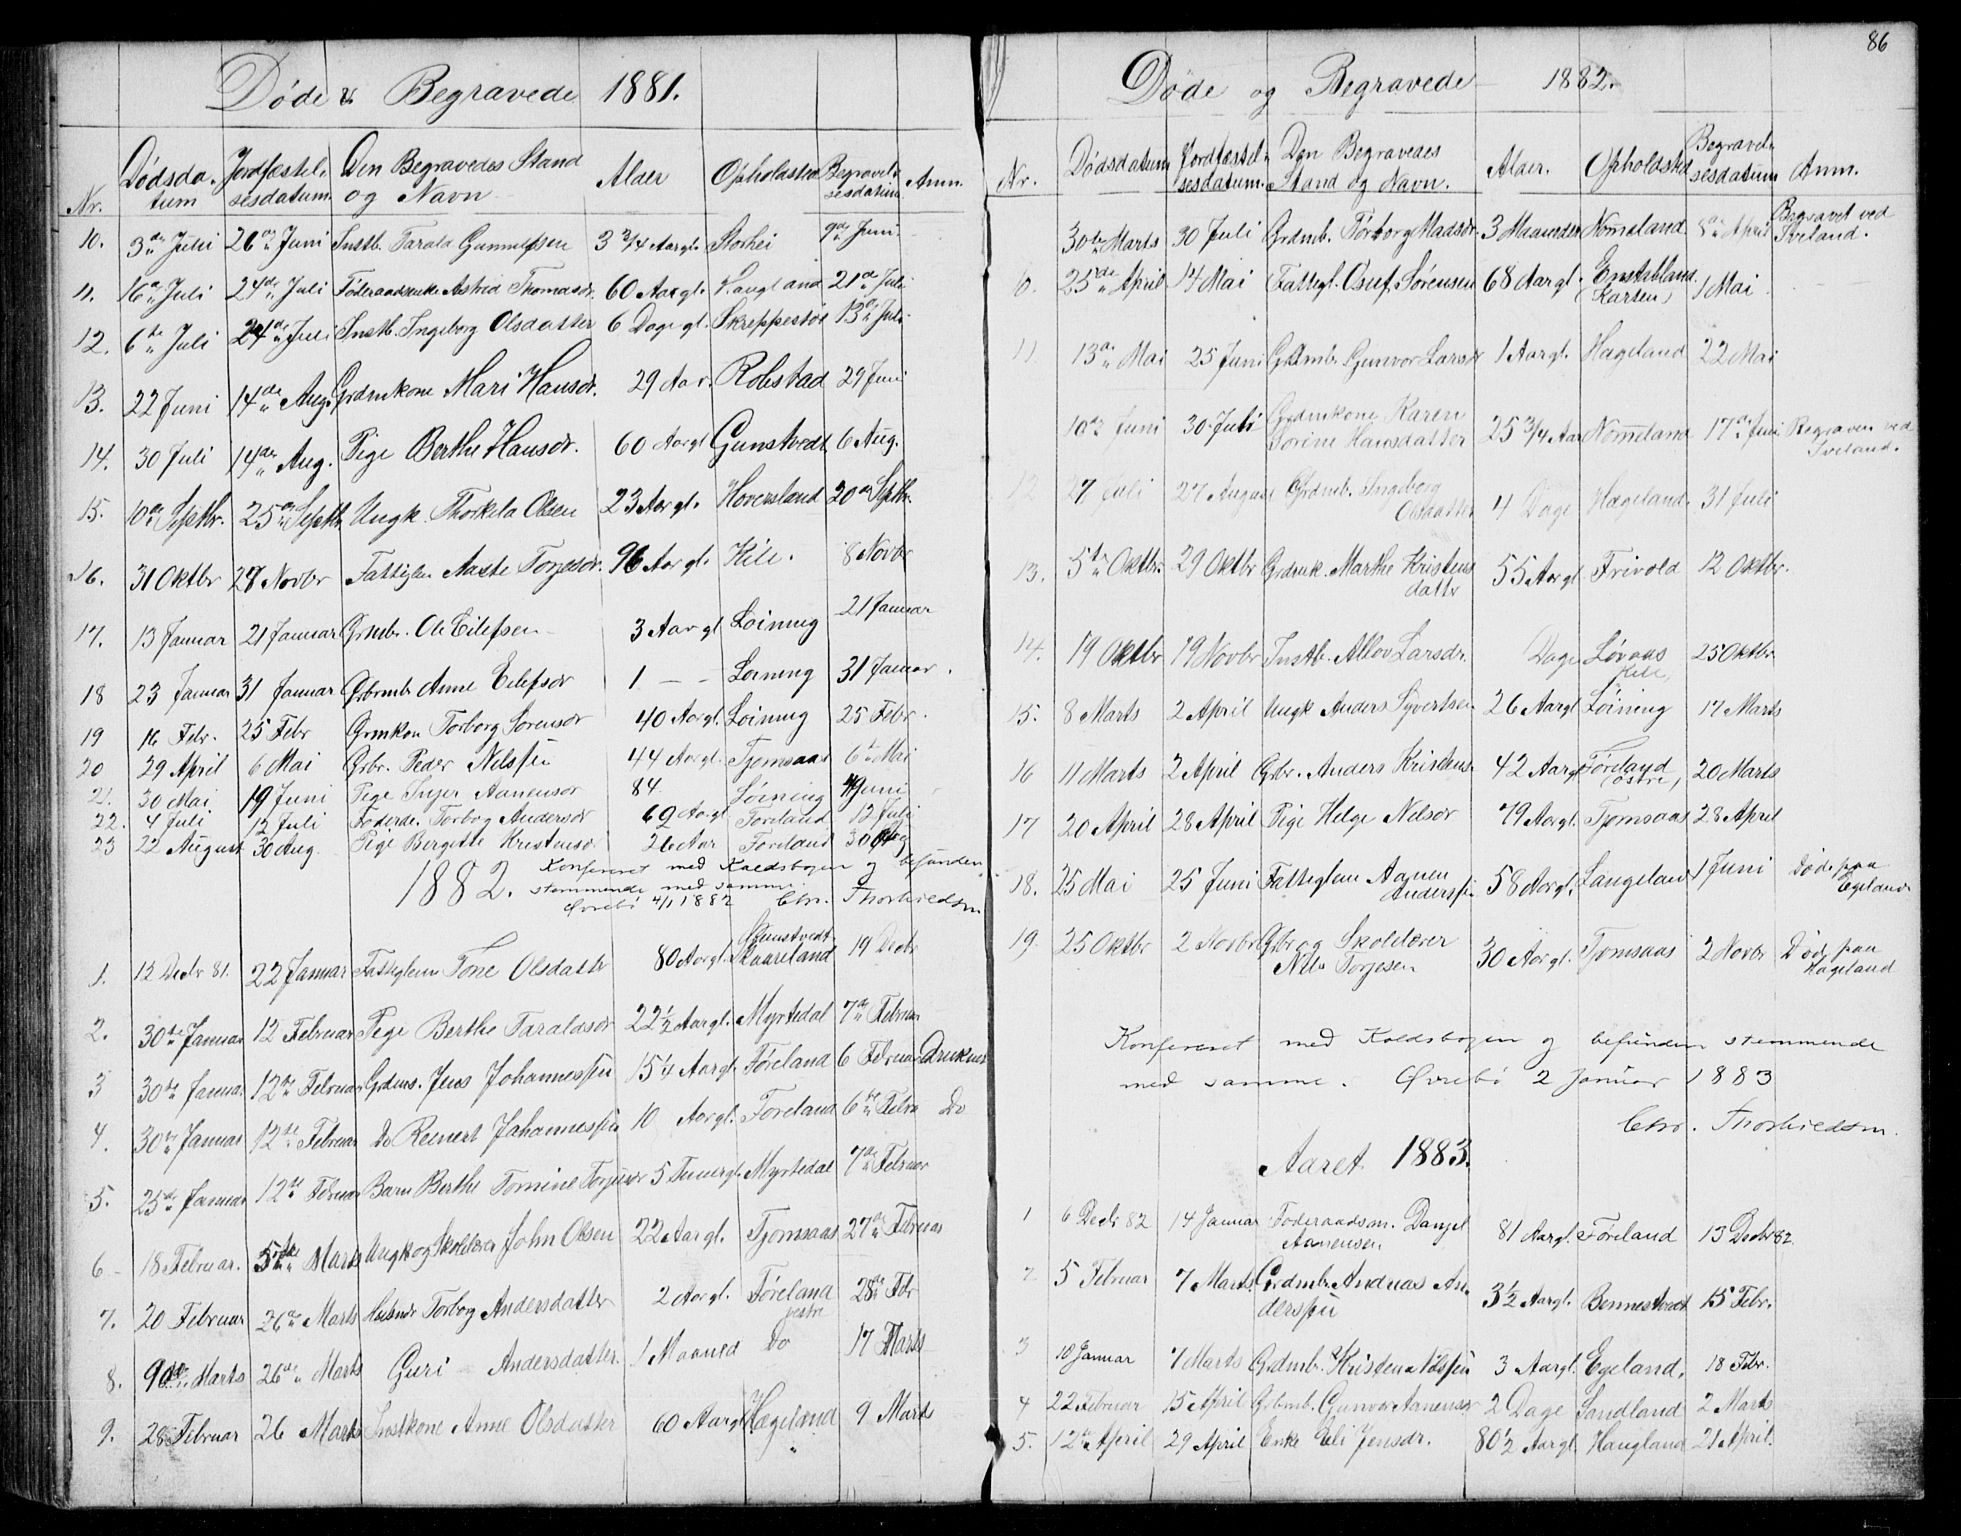 Døde & Begravede 1881.
Nr. Dødsdatum Jordfæstelsesdatum Den Begravedes Stand og Navn Alder Opholdsted Begravelsesdatum Anm.
10. 3de Juli 26de Juni Instb. Tarald Gunnulfsen 3 3/4 Aargl. Storhei 9de Juni
11. 16de Juli 24de Juli Føderaadsenke Astrid Thomasdr. 60 Aargl. Haugland 21de Juli
12. 6te Juli 24de Juli Instb. Ingeborg Olsdatter 6 Dage gl. Skreppestøl 13de Juli
13. 22 Juni 14de Aug. Grdmkone Mari Hansdr. 29 Aar. Robstad 29 Juni
14. 30 Juli 14de Aug. Pige Berthe Hansdr. 60 Aargl Gunstvedt 6 Aug.
15. 10de Septbr. 25de Septbr Ungk. Thorkild Olsen 23 Aargl. Hoversland 20de Septbr.
16. 31 Oktbr 28 Novbr Fattiglem Aaste Torjesdr. 96 Aargl. Kile. 8 Novbr
17. 13 Januar 21 Januar Grmbr. Ole Eilefsen 3 Aargl Løining 21 Januar
18 23 Januar 31 Januar Grbrmb Anne Eilefsdr 1 — — Løining 31 Januar.
19 16 Febr. 25 Febr Grmkon Torborg Sørensdr 40 Aargl. Løining 25 Febr.
20 29 April 6 Mai Grbr. Peder Nilssen 44 Aargl. Tjomsaas 6te Mai
21. 30 Mai 19 Juni Pige Inger Aanensdr 84. Løining Juni
22. 4 Juli 12 Juli Føderde. Torbog Andersdr 69 Aargl Føreland 12 Juli
23 22 August 30 Aug. Pige Bergitte Kristensdr 26 Aar Føreland 30 Aug
1882. Konfereret med Kaldsbogen og befunden
stemmende med samme.
Øvrebø 4/1 1882 Chr. Thorkildsen
1. 12 Decbr 81. 22 Januar Fattiglem Tone Olsdatter 80 Aargl. Gunstvedt Skaareland 19 Decbr
2. 30te Januar 12 Februar Pige Berthe Taraldsdr 22 1/2 Aargl. Myrtedal 7de Februar
3 30te Januar 12te Februar Grdms. Jens Johannessen 15 1/4 Aargl. Føreland 6 Februar Druknet
4. 30te Januar 12te Februar Do Reinert Johannessen 10 Aargl. Føreland 6te Febru Do
5. 25de Januar 12te Februar Barn Berthe Tomine Torjusdr 5 Timergl. Myrtedal 7de Februar
6 - 18 Februar. 5te Marts Ungk og Skolelærer John Olsen 22 Aargl. Tjomsaas 27de Februar
7. 20 Februar 26de Marts Husmdr Torbog Andersdatter 2 Aargl. Føreland vestre 28de Febr
8. 9de Marts 26de Marts Guri Andersdatter. 1 Maaned Do 17 Marts
9. 28 Februar 26 Marts Instkone Anne Olsdatter 60 Aargl Hægeland 9 Marts
86
Døde og Begravede 1882.
Nr. Dødsdatum Jordfæstelsesdatum. Den Begravedes Stand og Navn. Alder. Opholdsted Begravelsesdatum Anm.
30te Marts 30 Juli Grdmb. Torborg Madsdr. 3 Maaneder Nomeland 8de April Begravet ved Iveland.
0. 25de April 14 Mai Fattigl. Osuf Sørensen 68 Aargl. Enstabland (Karten) 1 Mai
11. 13de Mai 25 Juni Grdmb. Gunvor Larsdr 1 Aargl. Hægeland 22 Mai
10de Juni 30 Juli Grdmkone Karen Torine Hansdatter 25 3/4 Aar Nomeland 17de Juni Begraven ved Iveland.
12 27 Juli 27 August Grdmb. Ingeborg Olsdatter 4 Dage Hægeland. 31 Juli
13. 5te Oktbr. 29 Oktbr Grdmk. Marthe Kristensdatter 55 Aargl. Frivold 12 Oktbr.
14. 19 Oktbr 19 Novbr Instb. Allov Larsdr. Dage Løvaas Kile, 25 Oktbr
15. 8 Marts 2 April Ungk Anders Syvertsen 26 Aargl Løining 17 Marts
16 11 Marts 2 April Grbr. Anders Kristens 42 Aargl Føreland østre, 20 Marts
17 20 April 28 April Pige Helge Nelsdr 79 Aargl. Tjomsaas 28 April
18. 25 Mai 25 Juni Fattiglem Aanen Anderssen 58 Aargl. Langeland 1 Juni Døde paa Egeland
19. 25 Oktbr 2 Novbr Grbr og Skolelærer Nils Torjesen 30 Aargl. Tjomsaas 2 Novbr Døde paa Hægeland
Konfereret med Kaldsbogen og befunden stemmende
med samme. Øvrebø 2 Januar 1883
Chr. Thorkildsen.
Aaret 1883.
1 6 Decbr 82 14 Januar Føderaadsm. Danjel Aanensen. 81 Aargl. Føreland 13 Decbr 82.
2 5 Februar 7 Marts Grdmb. Andreas Anderssen 3 1/2 Aargl. Bennestvedt 15 Febr.
3 10 Januar 7 Marts Grdmb. Kristen Nilssen 3 Aargl. Egeland. 18 Febr.
4 22 Februar 15 April Grbmb. Gunvor Aanensdr 2 Dage Sandland 2 Marts
5. 12te April 29 April Enke Eli Jensdr. 80 1/2 Aargl. Haugland 21 April.